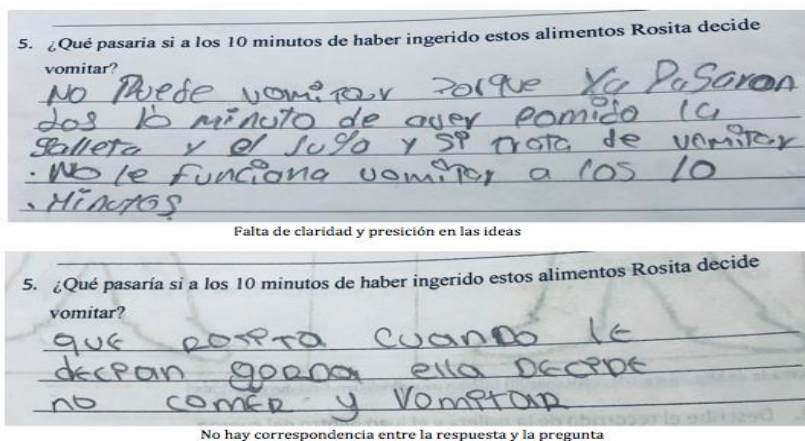 5. ¿Qué pasaría si a los 10 minutos de haber ingerido estos alimentos Rosita decide
vomitar?
No Puede vomitar Porque Ya PaSaron
dos 10 minuto de aver comido la
galleta y el Jugo y si trata de vomitar
. No le funciona vomitar a los 10
. Minutos
Falta de claridad y presición en las ideas
5. ¿Qué pasaría si a los 10 minutos de haber ingerido estos alimentos Rosita decide
vomitar?
que rosita cuando le
decian gorda ella Decide
no comer y Vomitar
No hay correspondencia entre la respuesta y la pregunta